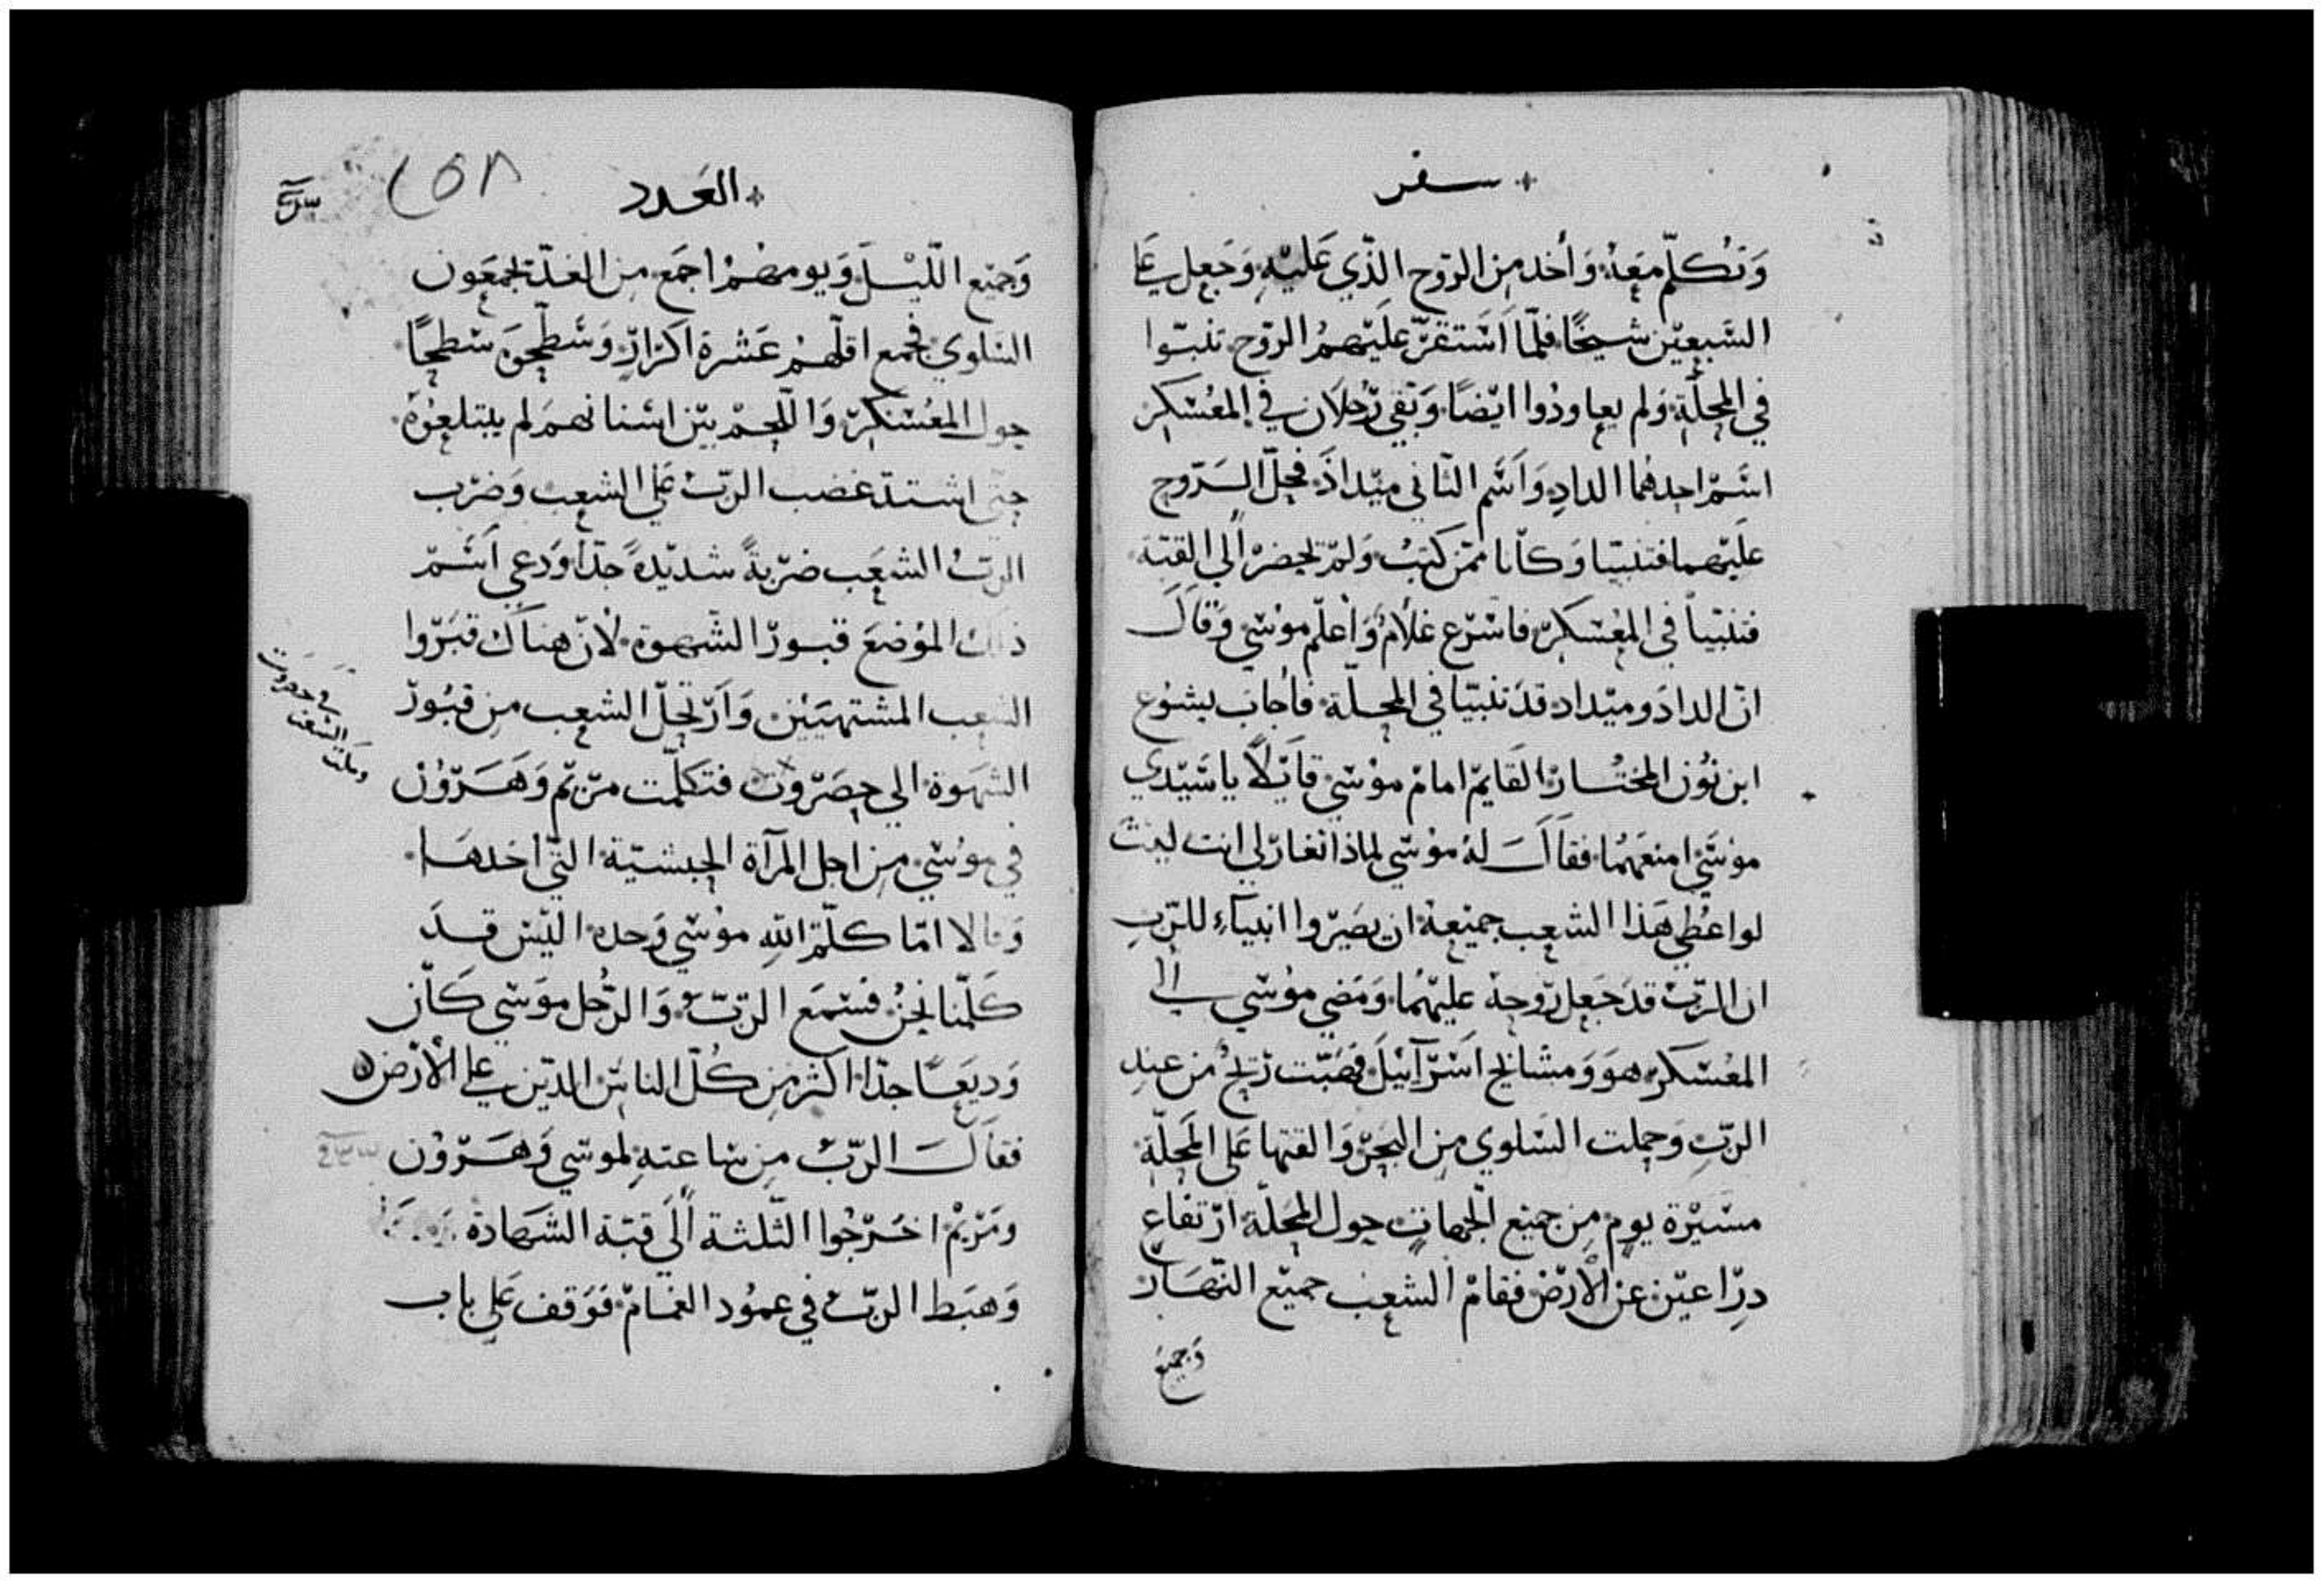 سفر
وَتكلّم معَهُ وَأخد من الرّوح الذّي عَليْهِ وَجَعل علي
السَّبعيْن شيخًا فلمّا اَسْتقرّ عليْهمُ الروّح تنبّوا
في المحلّةِ وَلم يعاودُوا ايْضًا وَبَقي رُجلَان في المعُسْكر
اسْم احدهُما الدادِ وَاَسْم الثاني ميْدادَ فحلّ الرّوح
عليْهما فتنبيّا وَكاَنا ممّن كتِبُ وَلمْ يحضرْ اُلي القبّة
فتنبّياً في المعُسْكر فاسْرَع غلَامُ وَاْعلَم موُسْي وَقالَ
انّ الدادَ وميْداد قدَ تنبيّا في المحلّة فأجابَ يشوُع
ابن نوُن المختُار القَايم امامْ موُسْي قايْلاً يا سَيّدي
موُسْي امنعَهُما فقاَلَ لهُ موُسْي لماذا تغارْ لي انت ليْث
لو اعُطي هَذا الشعب جميْعهُ ان يصَيْروا انبيَآءِ للرّبِ
ان الربّ قدَ جَعل رّوحهُ عليْهُما وَمَضي موُسْي الي
المعُسْكر هوَ وَمشايخ اسْرَآئيْلَ فهَبّت رْيحُ من عندِ
الربّ وَحملت السَلوي من البَحرْ وَالقتها عَلي المَحلّة
مسْيْرة يومٍ من جميْع الجهاتِ حول المحَلّة ارْتفاع
درِّاعيْن عن الْارَضْ فقامْ الشعب جميْع النّهَارْ
وَجميع
العَدد
٢٥٨
وَجميْع اللّيْلَ وَيومهُمْ اجمَع من الغدّ يجمعَون
السَلوي فجمع اقلّهمُ عَشرة اكَرارٍ وَسَطّحوَهُ سْطحًا
حول المعُسْكرْ وَاللّحمْ بيْن اسْنانهمَ لم يبتلعوُهُ
حتّي اشتدّ غضب الربّ عَلي الشعب وَضرْب
الربّ الشعَب ضرْبةً شديْدةً جدّا وَدعي اَسْمْ
ذلك الموْضعَ قبورْ الشهوة لْانّ هناَك قبَرّوا
الشعب المشتهيَيْن وَارْتحلّ الشعب من قبُورْ
الشهَوة الي حصَرْوت فتكلّمت مرْيم وَهَرْوُنْ
في موُسْي من اجل المرآة الحبشيّة التّي اْخدهَا
وَقالا امّا كلّم اللهِ موُسْي وَحده اليْسْ قدَ
كَلّمنا نحنُ فسْمعَ الربّ وَالرّجُل موسَي كاَن
وَديَعًا جدّا اكثر من كُلّ الناسْ الدّيْن علي الْارْض
فقاَلَ الربّ من سْاعتهِ لموسْي وَهَرّوْن
ومَرْيمْ اخَرْجُوا الثّلثة اُلَي قبّة الشهَادة
وَهبَط الربّ في عموُد الغمَامْ فوَقف عَلي باب